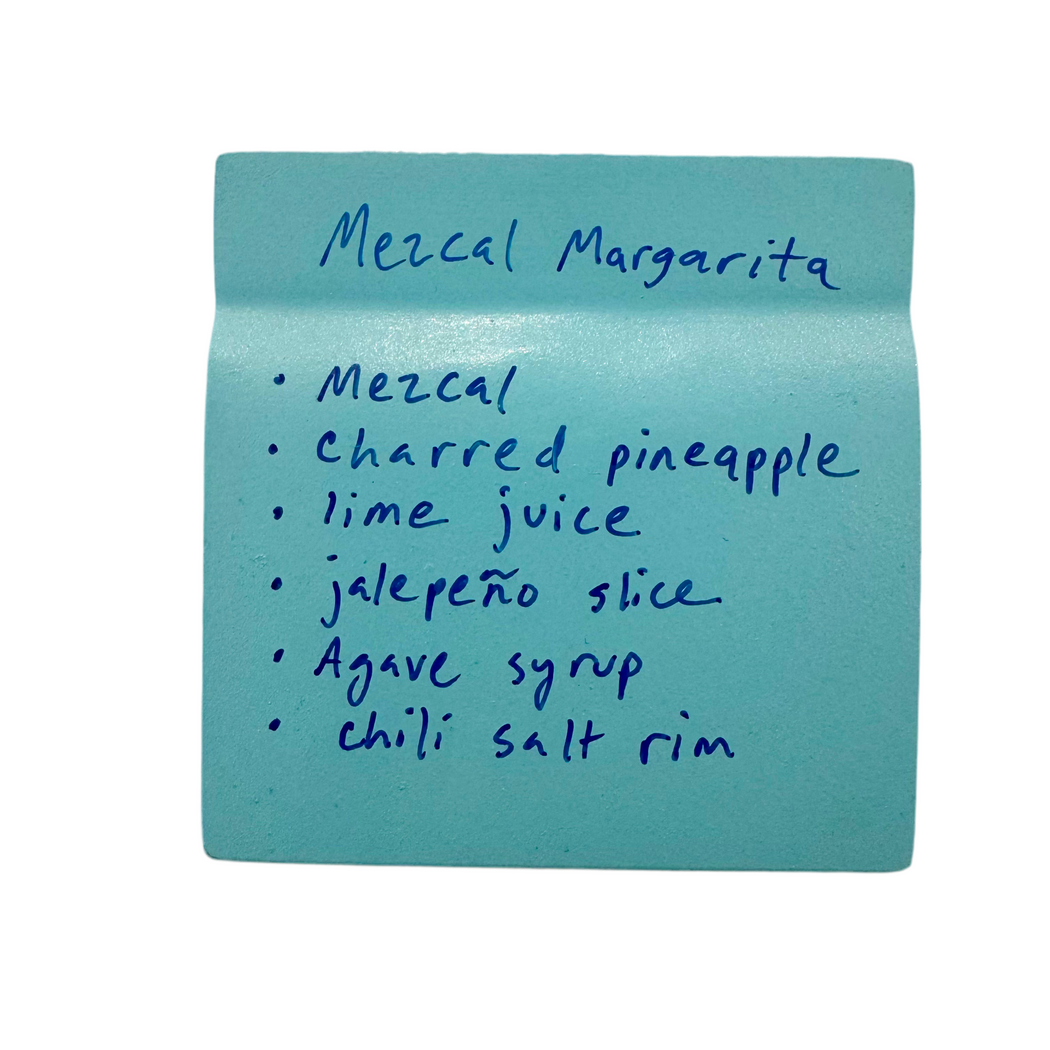 Mezcal Margarita
• Mezcal
• Charred pineapple
• lime juice
• jalepeño slice
• Agave syrup
• chili salt rim